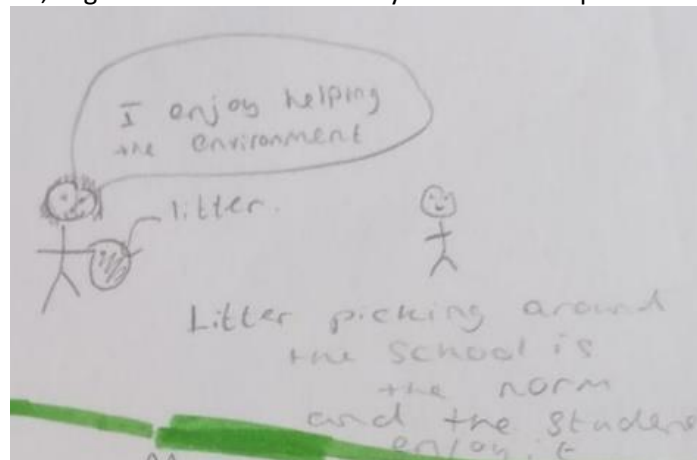 I enjoy helping
the environment
litter.
Litter picking around
the school is
the norm
and the student
enjoy it